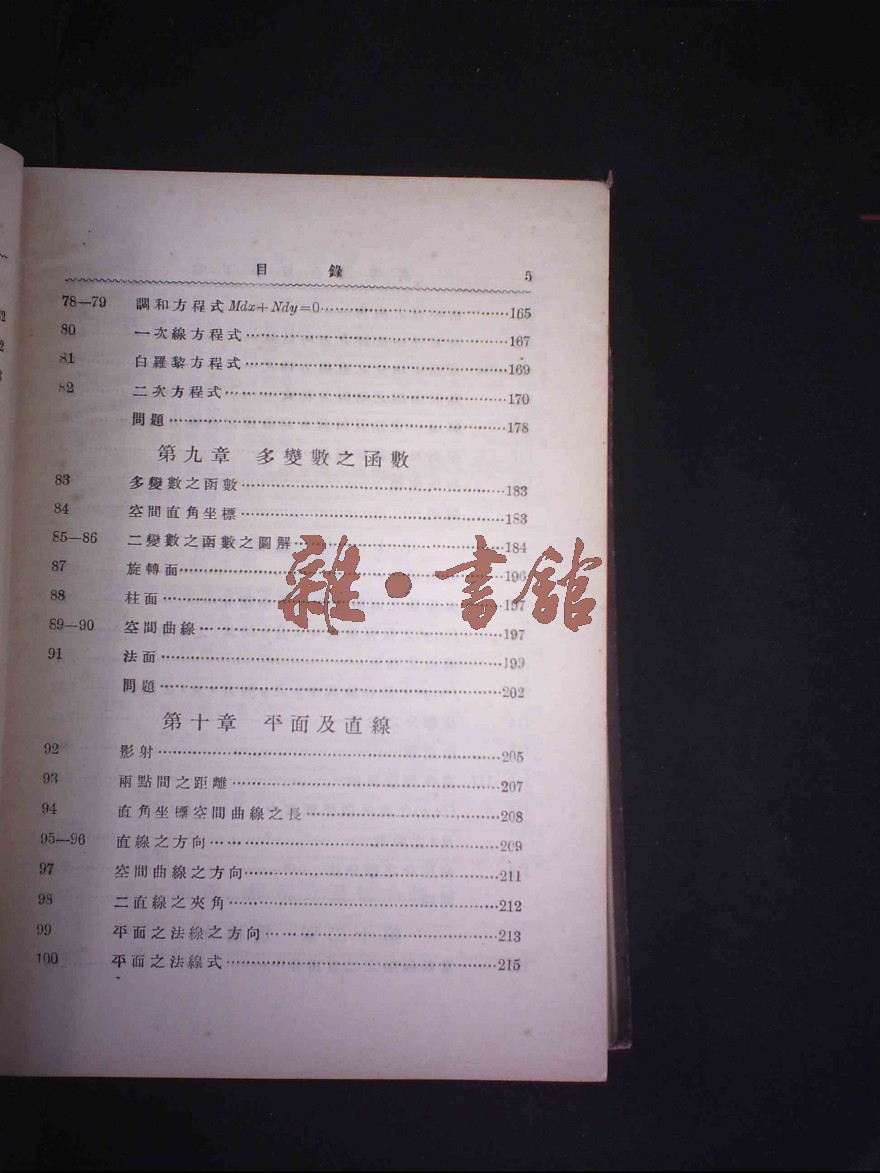 目錄 5
78—79 調和方程式Mdx+Ndy=0……165
80 一次線方程式……167
81 白羅黎方程式……169
82 二次方程式……170
問題……178
第九章 多變數之函數
83 多變數之函數……183
84 空間直角坐標……183
85—86 二變數之函數之圖解……184
87 旋轉面……196
88 柱面……197
89—90 空間曲線……197
91 法面……199
問題……202
第十章 平面及直線
92 影射……205
93 兩點間之距離……207
94 直角坐標空間曲線之長……208
95—96 直線之方向……209
97 空間曲線之方向……211
98 二直線之夾角……212
99 平面之法線之方向……213
100 平面之法線式……215
雜·書館